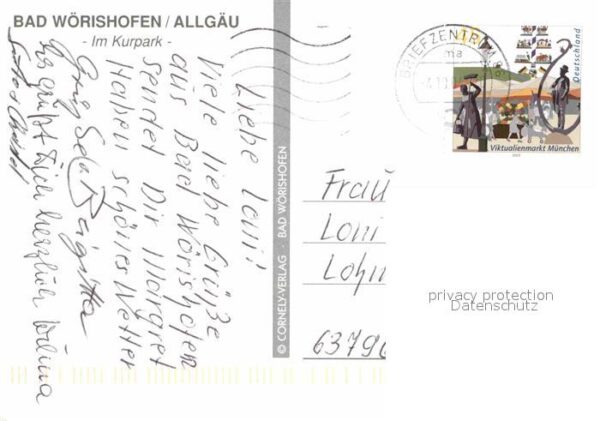 BAD WÖRISHOFEN / ALLGÄU
- Im Kurpark -
Liebe Loni!
Viele liebe Grüße
aus Bad Wörishofen
sendet Dir Margret
Haben schönes Wetter
Brigitta
Es grüßt Dich herzlich Wilma
© CORNELY-VERLAG · BAD WÖRISHOFEN
BRIEFZENTRUM
Deutschland
Viktualienmarkt München
Frau
Loni
Lohn
63796
privacy protection
Datenschutz